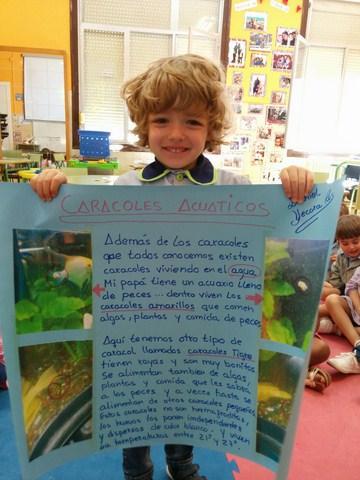 CARACOLES ACUATICOS
Además de los caracoles
que todos conocemos existen
caracoles viviendo en el agua.
Mi papá tiene un acuario lleno
de peces... dentro viven los
caracoles amarillos que comen
algas, plantas y comida de peces
Aquí tenemos otro tipo de
caracol llamados caracoles Tigre
tienen rayas y son muy bonitos
Se alimentan tambien de algas,
plantas y comida que les sobra
a los peces y a veces hasta se
alimentan de otros caracoles pequeños
Estos caracoles no son hermafroditas,
los huevos los ponen independientes
y dispersos de color blanco. y viven
en temperaturas entre 21º y 27º.